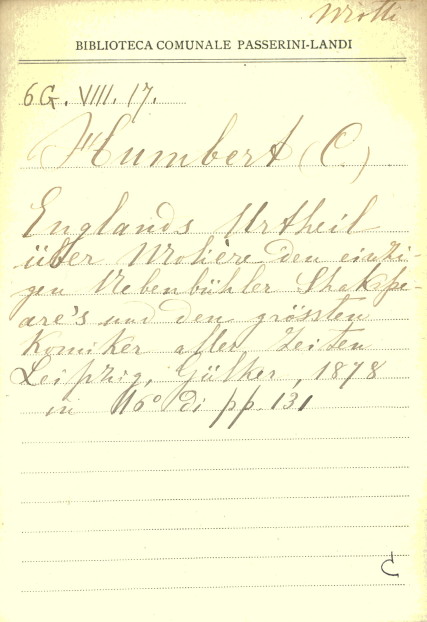 Miotti
BIBLIOTECA COMUNALE PASSERINI-LANDI
6G. VIII. 17.
Humbert (C.)
Englands Urtheil
über Molière den einzi-
gen Nebenbühler Shakspe-
are's und den grössten
Komiker aller Zeiten
Leipzig, Gülker, 1878
in 16° di pp. 131
C